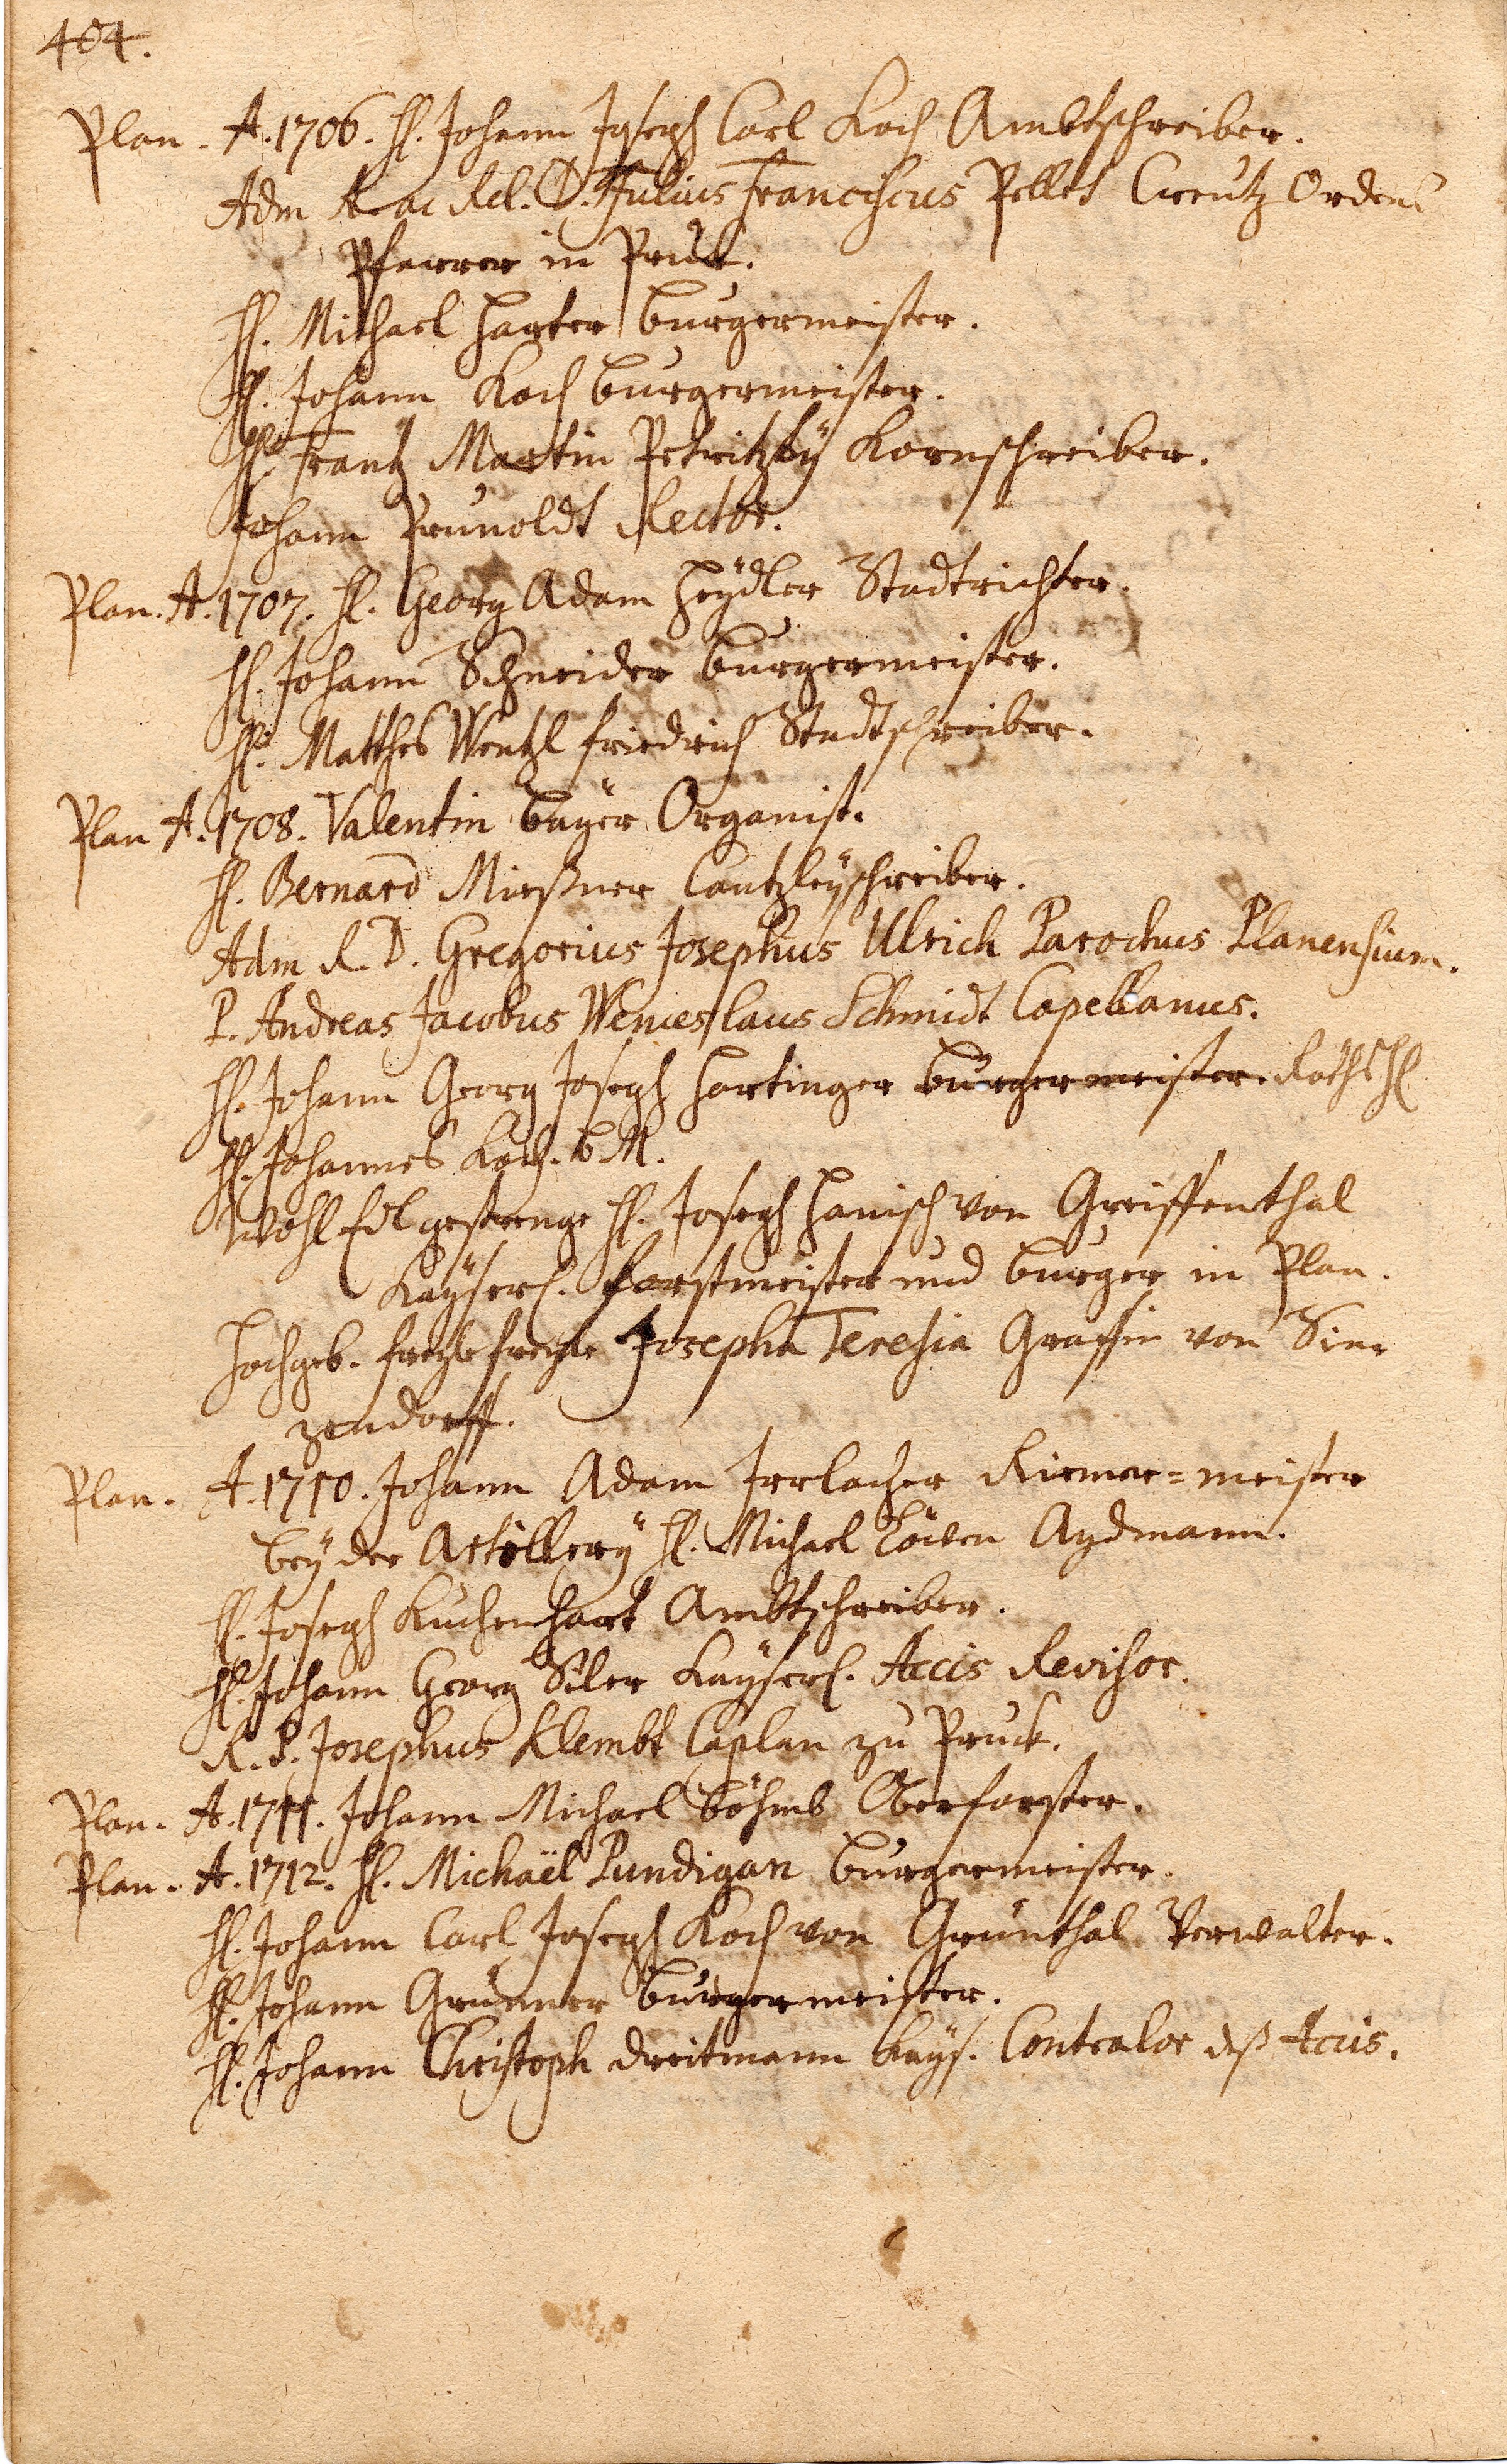 404.
Plan. A. 1706. H. Johann Joseph Carl Koch Ambtschreiber.
Adm R. ac Rel. D. Julius Franciscus Pellet Creutz Ordens
Pfarrer in Pruck.
H. Michael Harter burgermeister.
H. Johann Koch burgermeister.
H. Frantz Martin Petritzky Kornschreiber.
Johann Prunoldt Rector.
Plan. A. 1707. H. Georg Adam Heÿdler Stadtrichter.
H. Johann Schneider burgermeister.
H. Matthes Wentzl friedrich Stadtschreiber.
Plan A. 1708. Valentin baÿer Organist.
H. Bernard Mießner Cantzleÿschreiber.
Adm R. D. Gregorius Josephus Ulrich Parochus Planensium.
P. Andreas Jacobus Wenceslaus Schmidt Capellanus.
H. Johann Georg Joseph Hartinger burgermeister. Raths H
H. Johannes Koch. b M.
Wohl Edl gestrenge H. Joseph Hanisch von Greiffenthal
Kaÿserl. forstmeister und burger in Plan.
Hochgeb. Josepha Teresia Graffin von Sin-
zendorff.
Plan. A. 1710. Johann Adam Irrlacher Riemer=meister
beÿ der Artillerÿ H. Michael Aydmann.
H. Joseph Kuchenhart Ambtschreiber.
H. Johann Georg Siler Kaÿserl. Accis Revisor.
R. P. Josephus Klembt Caplan zu Pruck.
Plan. A. 1711. Johann Michael böhmb Oberforster.
Plan. A. 1712. H. Michaël Pundigan burgermeister.
H. Johann Carl Joseph Koch von Grünthal Verwalter.
H. Johann Grünner burgermeister.
H. Johann Christoph dreitmann Kaÿs. Contralor deß Accis.